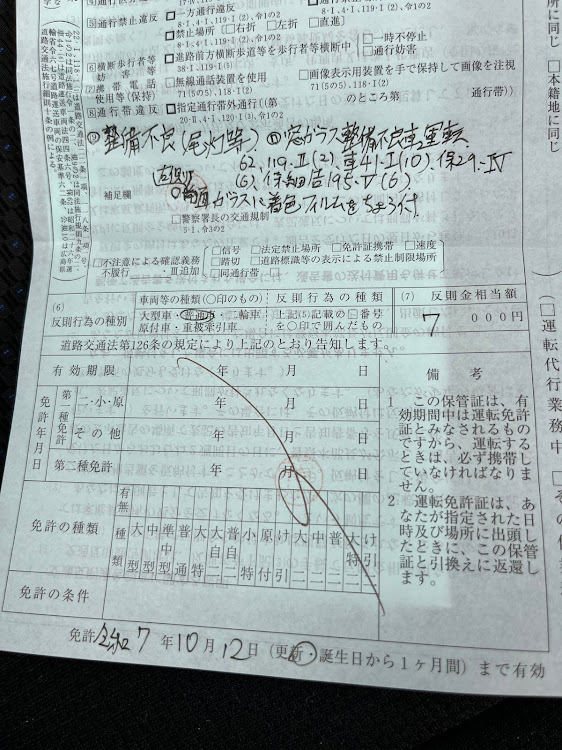 ⑸通行禁止違反
□一方通行違反
8·Ⅰ,4·Ⅰ,119·Ⅰ(2),令1の2
□禁止場所(□右折 □左折 □直進)
8·Ⅰ,4·Ⅰ,119·Ⅰ(2),令1の2
⑹横断歩行者等妨害等
□進路前方横断歩道等を歩行者等横断中
38·Ⅰ,119·Ⅰ(5)
□一時不停止
□通行妨害
⑺携帯電話使用等(保持)
□無線通話装置を使用
71(5の5),118·Ⅰ(2)
□画像表示用装置を手で保持して画像を注視
71(5の5),118·Ⅰ(2)
⑻通行帯違反
□指定通行帯外通行((第 のところ第 通行帯))
20·Ⅱ,4·Ⅰ,120·Ⅰ(3),令1の2
整備不良(尾灯等)
窓ガラス整備不良車運転
62,119·Ⅱ(2),車41·Ⅰ(10),保29·Ⅳ
(6),保細告195·Ⅴ(6)
補足欄
ガラスに着色フィルムを
□警察署長の交通規制
5·1,令3の2
□不注意による確認義務不履行 ·Ⅲ追加
□信号 □法定禁止場所 □免許証携帯 □速度
□踏切 □道路標識等の表示による禁止制限場所
□同通行帯 □
(6)
反則行為の種別
車両等の種類(○印のもの)
大型車・普通車・二輪車・
原付車・重被牽引車
反則行為の種類
上記(5)記載の□番号
を○印で囲んだもの
(7) 反則金相当額
7 000円
道路交通法第126条の規定により上記のとおり告知します。
有効期限 年 月 日
免許年月日
第一種免許
二・小・原 年 月 日
その他 年 月 日
第二種免許 年 月 日
免許の種類
有無
種類
大型
中型
準中型
普通
大特
大自二
普自二
小特
原付
け引
大二
中二
普二
大特二
け引二
免許の条件
備考
1 この保管証は、有
効期間中は運転免許
証とみなされるもの
ですから、運転する
ときは、必ず携帯し
ていなければなりま
せん。
2 運転免許証は、あ
なたが指定された日
時及び場所に出頭し
たときに、この保管
証と引換えに返還し
ます。
免許 令和7年10月12日(更新・誕生日から1ヶ月間)まで有効
所に同じ □本籍地に同じ
(□運転代行業務中